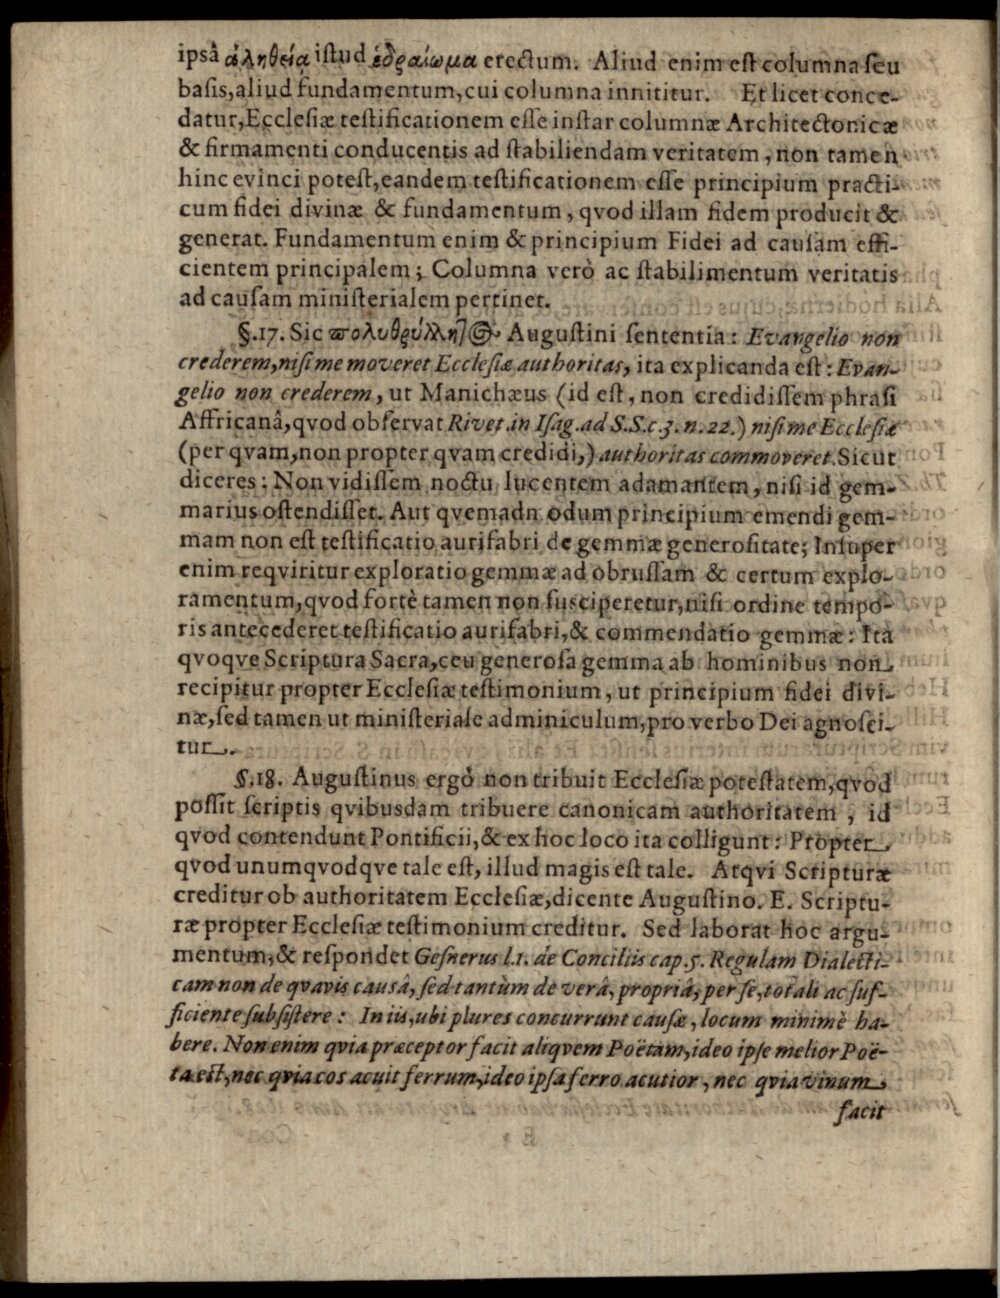 ipsâ ἀληθείᾳ iſtud ἑδραίωμα erectum. Aliud enim eſt columna ſeu
baſis, aliud fundamentum, cui columna innititur. Et licet conce-
datur, Eccleſiæ teſtificationem eſſe inſtar columnæ Architectonicæ
& firmamenti conducentis ad ſtabiliendam veritatem, non tamen
hinc evinci poteſt, eandem teſtificationem eſſe principium practi-
cum fidei divinæ & fundamentum, qvod illam fidem producit &
generat. Fundamentum enim & principium Fidei ad cauſam effi-
cientem principalem; Columna verò ac ſtabilimentum veritatis
ad cauſam miniſterialem pertinet.
§. 17. Sic πολυθρύλλητος Auguſtini ſententia: Evangelio non
crederem, niſi me moveret Eccleſiæ authoritas, ita explicanda eſt: Evan-
gelio non crederem, ut Manichæus (id eſt, non credidiſſem phraſi
Affricanâ, qvod obſervat Rivet. in Iſag. ad S. S. c. 3. n. 22.) niſi me Eccleſiæ
(per qvam, non propter qvam credidi,) authoritas commoveret. Sicut
diceres: Non vidiſſem noctu lucentem adamantem, niſi id gem-
marius oſtendiſſet. Aut qvemadn odum principium emendi gem-
mam non eſt teſtificatio aurifabri de gemmæ generoſitate; Inſuper
enim reqviritur exploratio gemmæ ad obruſſam & certum explo-
ramentum, qvod fortè tamen non ſuſciperetur, niſi ordine tempo-
ris antecederet teſtificatio aurifabri, & commendatio gemmæ: Ita
qvoqve Scriptura Sacra, ceu generoſa gemma ab hominibus non
recipitur propter Eccleſiæ teſtimonium, ut principium fidei divi-
næ, ſed tamen ut miniſteriale adminiculum, pro verbo Dei agnoſci-
tur.
§. 18. Auguſtinus ergò non tribuit Eccleſiæ poteſtatem, qvod
poſſit ſcriptis qvibusdam tribuere canonicam authoritatem, id
qvod contendunt Pontificii, & ex hoc loco ita colligunt: Propter
qvod unumqvodqve tale eſt, illud magis eſt tale. Atqvi Scripturæ
creditur ob authoritatem Eccleſiæ, dicente Auguſtino. E. Scriptu-
ræ propter Eccleſiæ teſtimonium creditur. Sed laborat hoc argu-
mentum, & reſpondet Geſnerus l. 1. de Conciliis cap. 5. Regulam Dialecti-
cam non de qvavis cauſâ, ſed tantùm de verâ, propriâ, per ſe, totali ac ſuf-
ficiente ſubſiſtere: In iis, ubi plures concurrunt cauſæ, locum minimè ha-
bere. Non enim qvia præceptor facit aliqvem Poëtam, ideo ipſe melior Poë-
ta eſt, nec qvia cos acuit ferrum, ideo ipſa ferro acutior, nec qvia vinum
facit